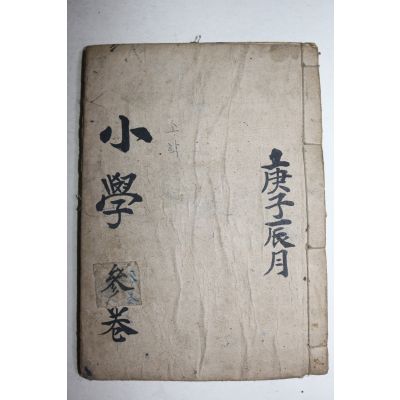 庚子辰月
소학
小學參卷